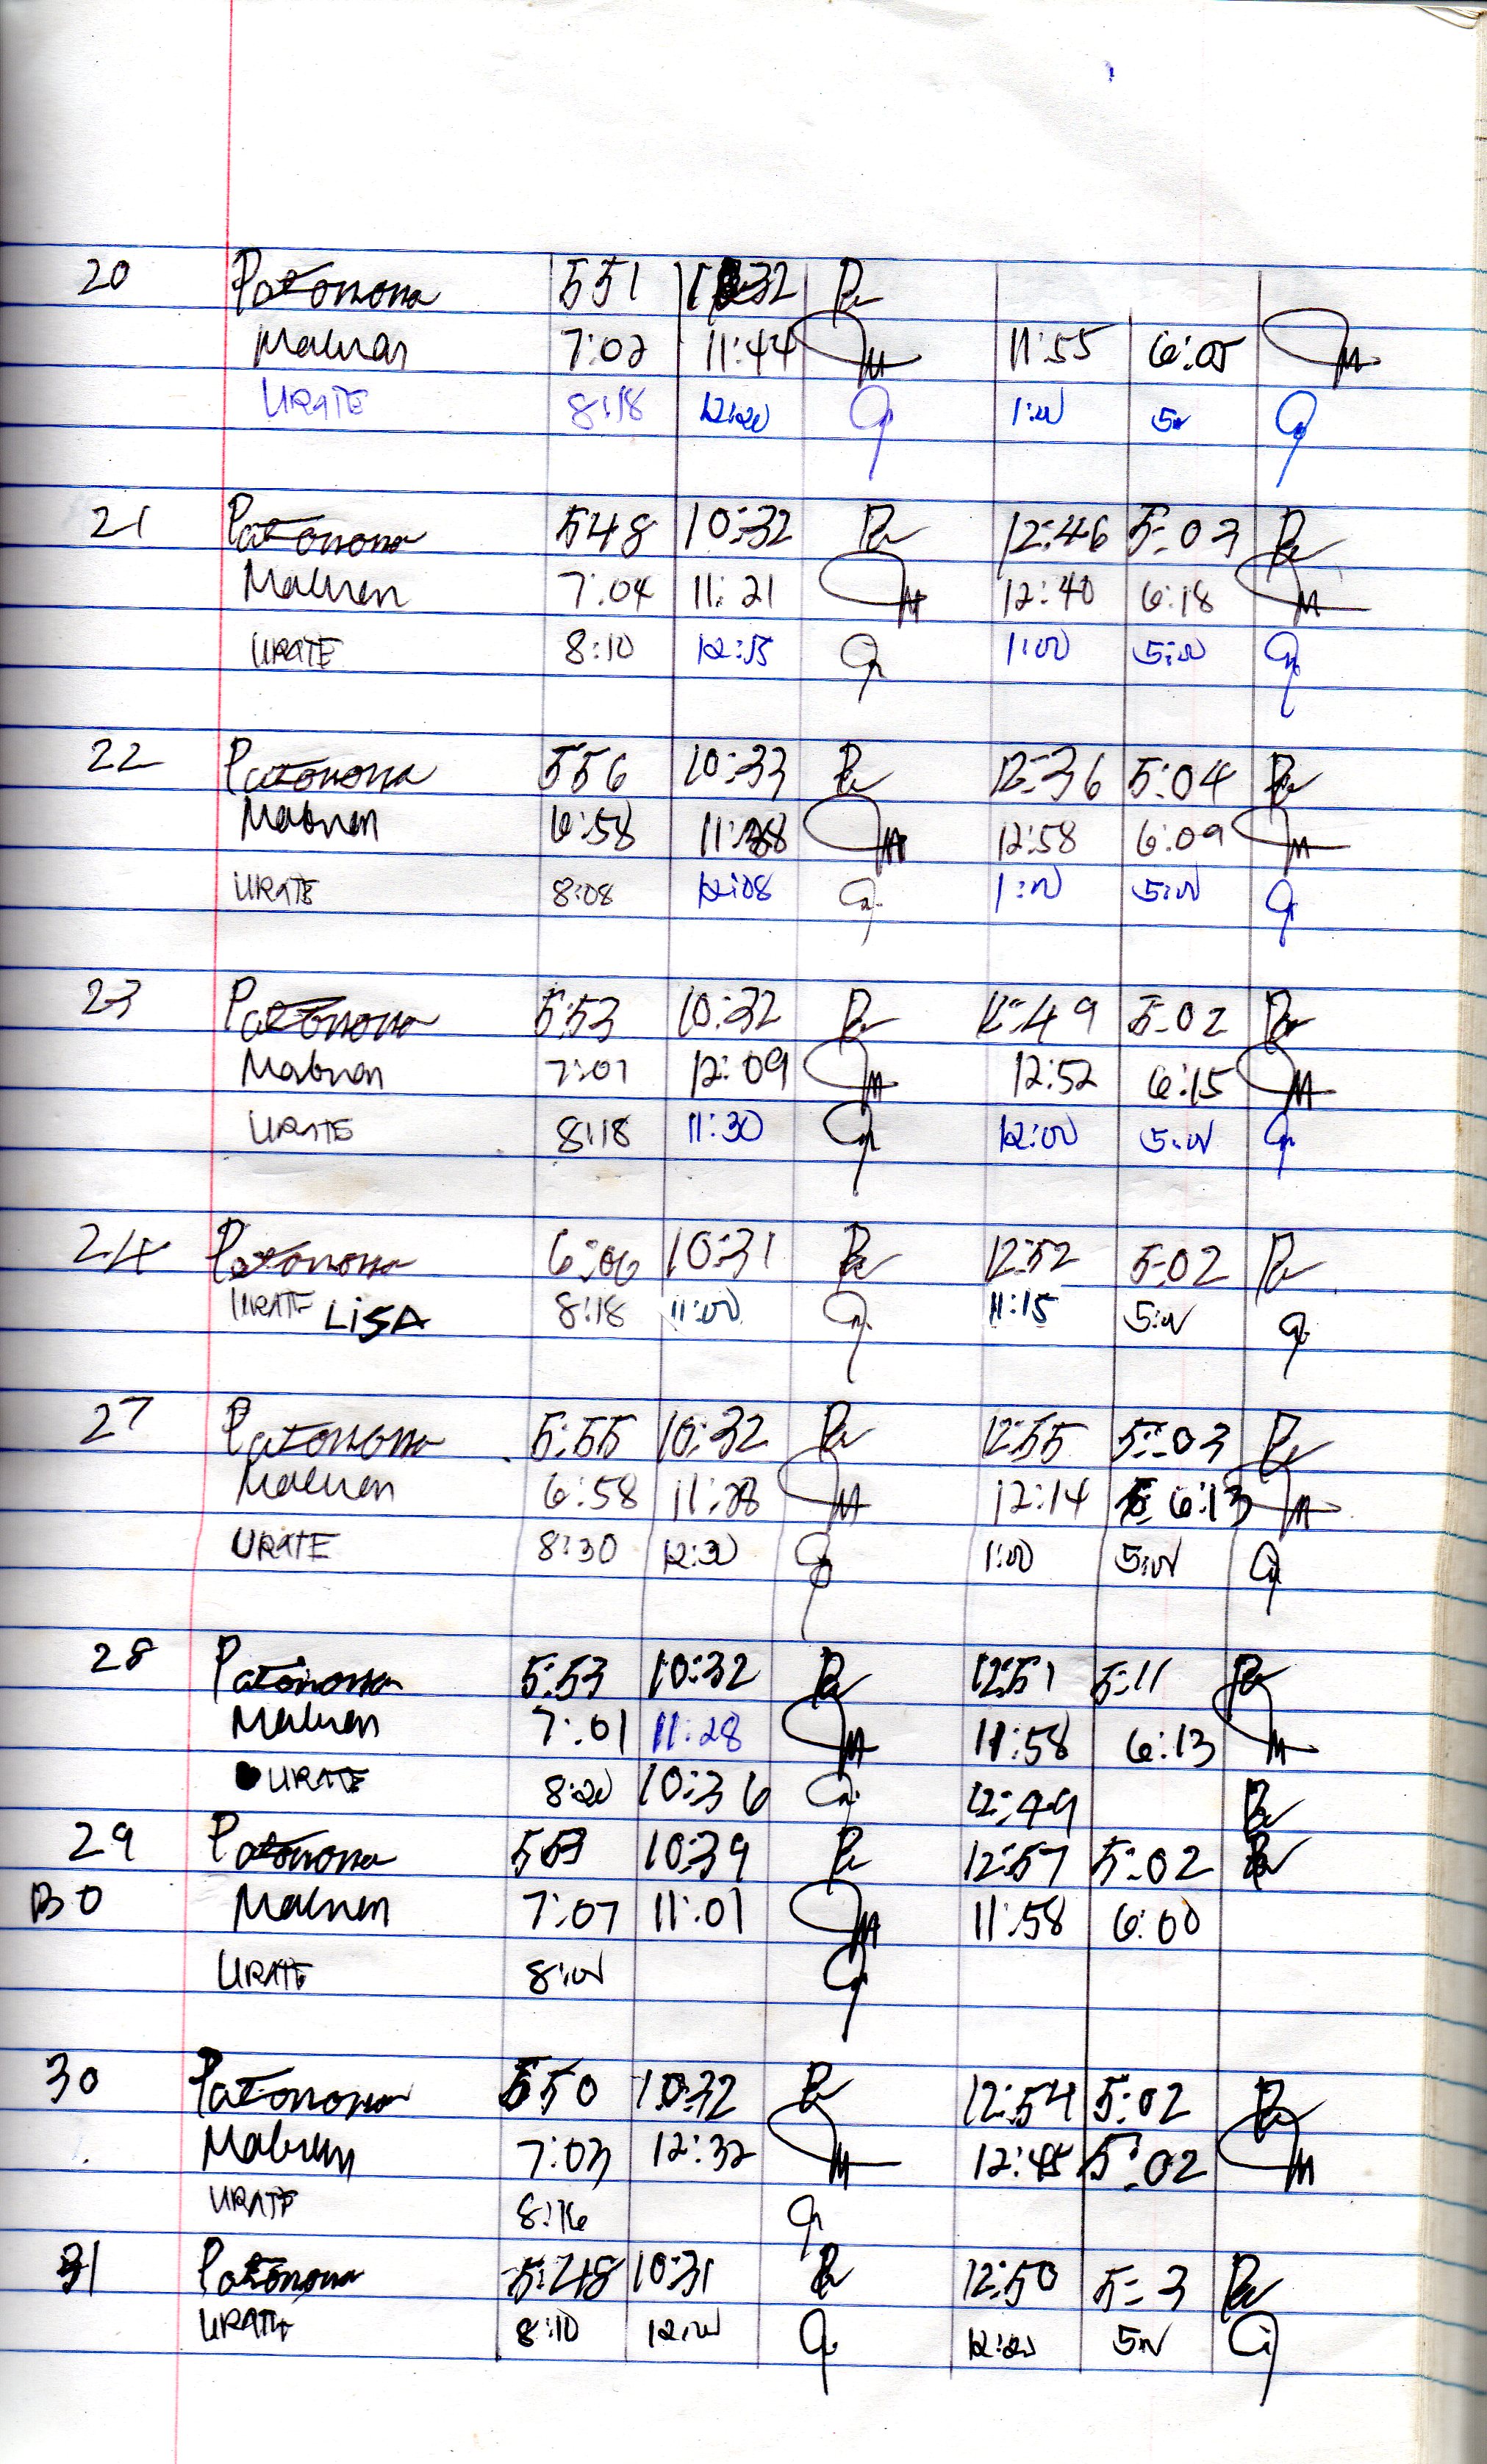 20 Patonona 551 10:32
Mabuan 7:02 11:44 11:55 6:05
URATE 8:18 12:20 1:00 5:00
21 Patonona 548 10:32 12:46 5:03
Mabuan 7:04 11:21 12:40 6:18
URATE 8:10 12:15 1:00 5:00
22 Patonona 556 10:33 12:36 5:04
Mabuan 6:58 12:58 6:09
URATE 8:08 12:08 1:00 5:00
23 Patonona 5:53 10:32 12:49 5:02
Mabuan 7:01 12:09 12:52 6:15
URATE 8:18 11:30 12:00 5:00
24 Patonona 6:06 10:31 12:52 5:02
URATE LISA 8:18 11:00 11:15 5:00
27 Patonona 5:55 10:32 12:55 5:03
Mabuan 6:58 11:28 12:14 6:13
URATE 8:30 12:30 1:00 5:00
28 Patonona 5:53 10:32 12:51 5:11
Mabuan 7:01 11:28 11:58 6:13
URATE 8:20 10:36 12:49
29 Patonona 553 10:39 12:57 5:02
30 Mabuan 7:07 11:01 11:58 6:00
URATE 8:00
30 Patonona 550 10:32 12:54 5:02
Mabuan 7:03 12:32 12:45 5:02
URATE 8:16
31 Patonona 5:48 10:31 12:50 5:3
URATE 8:10 12:00 12:20 5:00